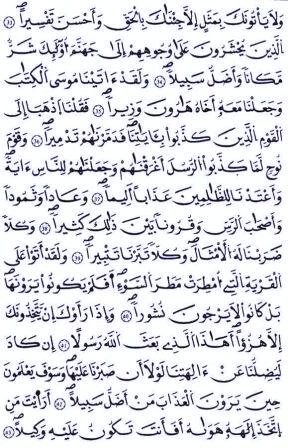 وَلَا يَاتُونَكَ بِمَثَلٍ إِلَّا جِئْنَٰكَ بِالْحَقِّ وَأَحْسَنَ تَفْسِيراً
اَلذِينَ يُحْشَرُونَ عَلَىٰ وُجُوهِهِمُ إِلَىٰ جَهَنَّمَ أُوْلَٰئِكَ شَرٌّ
مَّكَاناً وَأَضَلُّ سَبِيلاً وَلَقَدَ اٰتَيْنَا مُوسَى اَلْكِتَٰبَ
وَجَعَلْنَا مَعَهُ أَخَاهُ هَٰرُونَ وَزِيراً فَقُلْنَا اَذْهَبَا إِلَى
اَلْقَوْمِ اِلذِينَ كَذَّبُواْ بِـَٔايَٰتِنَا فَدَمَّرْنَٰهُمْ تَدْمِيراً وَقَوْمَ
نُوحٍ لَّمَّا كَذَّبُواْ اُلرُّسُلَ أَغْرَقْنَٰهُمْ وَجَعَلْنَٰهُمْ لِلنَّاسِ ءَايَةً
وَأَعْتَدْنَا لِلظَّٰلِمِينَ عَذَاباً أَلِيماً وَعَاداً وَثَمُوداً
وَأَصْحَٰبَ اَلرَّسِّ وَقُرُوناً بَيْنَ ذَٰلِكَ كَثِيراً وَكُلّاً
ضَرَبْنَا لَهُ اُلْأَمْثَٰلَ وَكُلّاً تَبَّرْنَا تَتْبِيراً وَلَقَدَ اَتَوْاْ عَلَى
اَلْقَرْيَةِ اِلتِي أُمْطِرَتْ مَطَرَ اَلسَّوْءِ اَفَلَمْ يَكُونُواْ يَرَوْنَهَا
بَلْ كَانُواْ لَا يَرْجُونَ نُشُوراً وَإِذَا رَأَوْكَ إِنْ يَّتَّخِذُونَكَ
إِلَّا هُزُؤاً اَهَٰذَا اَلذِي بَعَثَ اَللَّهُ رَسُولاً إِن كَادَ
لَيُضِلُّنَا عَنَ اٰلِهَتِنَا لَوْلَا أَن صَبَرْنَا عَلَيْهَا وَسَوْفَ يَعْلَمُونَ
حِينَ يَرَوْنَ اَلْعَذَابَ مَنَ اَضَلُّ سَبِيلاً اَرَٰيْتَ مَنِ
اِتَّخَذَ إِلَٰهَهُ هَوَىٰهُ أَفَأَنتَ تَكُونُ عَلَيْهِ وَكِيلاً